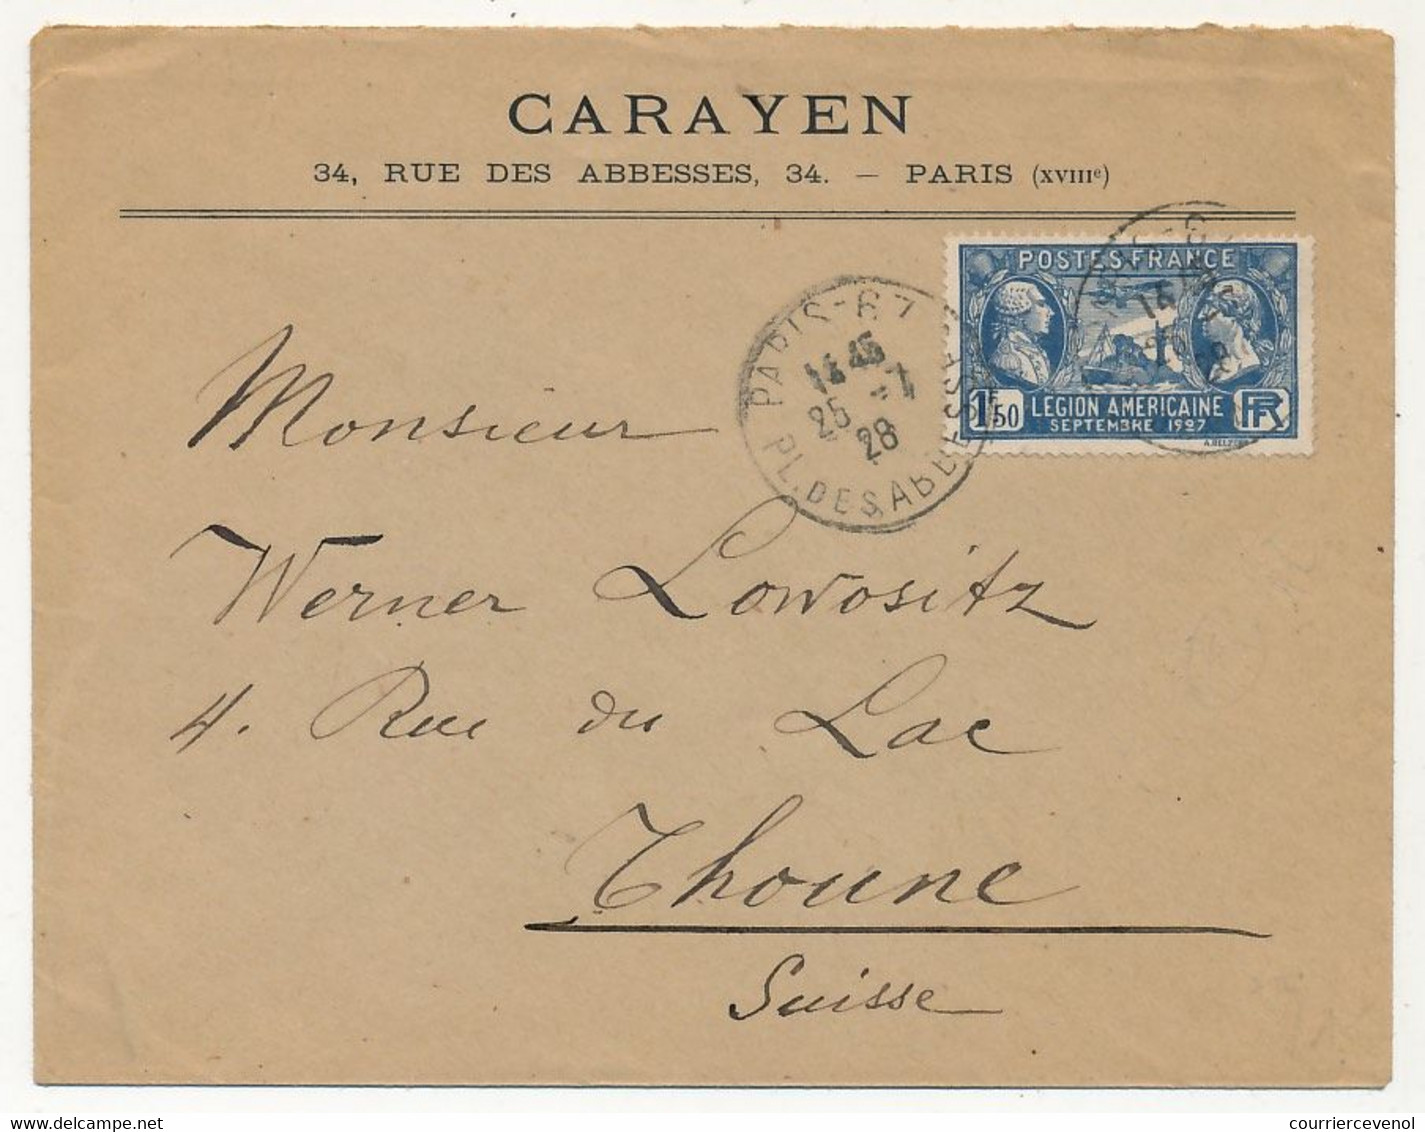 CARAYEN
34, RUE DES ABBESSES, 34. — PARIS (XVIIIe)
POSTES-FRANCE
1f50
LEGION AMERICAINE
SEPTEMBRE 1927
RF
PARIS-67
1445
25 -7
28
PL. DES ABBESSES
Monsieur
Werner Lowositz
4. Rue du Lac
Thoune
Suisse
www.delcampe.net
courriercevenol